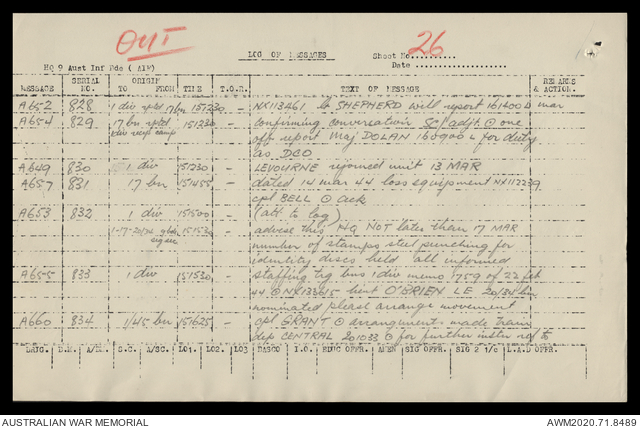 OUT
LOG OF MESSAGES Sheet No. 26
HQ 9 Aust Inf Bde (AIF) Date
MESSAGE SERIAL NO. ORIGIN TO FROM TIME T.O.R. TEXT OF MESSAGE REMARKS & ACTION.
A652 828 1 div rptd 17 bn 151230 - NX113461 Lt SHEPHERD will report 161400 L mar
A654 829 17 bn rptd 151230 - confirming conversation SC/adjt ⊙ one
div camp off report Maj DOLAN 160900 L for duty
as DCO
A649 830 1 div 151230 - LEVOURNE rejoined unit 13 MAR
A657 831 17 bn 151455 - dated 14 mar 44 loss equipment NX112239
cpl BELL ⊙ ack
A653 832 1 div 151500 (att to log)
151530 - advise this HQ NOT later than 17 MAR
sig sec number of stamps steel punching for
identity discs held all informed
A655 833 1 div 151530 - staffing trg bns 1 div memo 1759 of 22 feb
44 ⊙ lieut O'BRIEN LE bn
nominated please arrange movement
A660 834 1/45 bn 151625 - cpl GRANT ⊙ arrangements made train
dep CENTRAL 201033 ⊙ for further instr ref to
S.C. A/SC. LO1. LO2. LO3 DASCO I.O. RINC OFFR. SIG OFFR. SIG 2 i/c L.A.D OFFR.
AUSTRALIAN WAR MEMORIAL AWM2020.71.8489